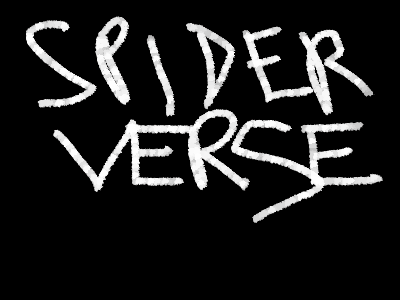 SPIDER
VERSE